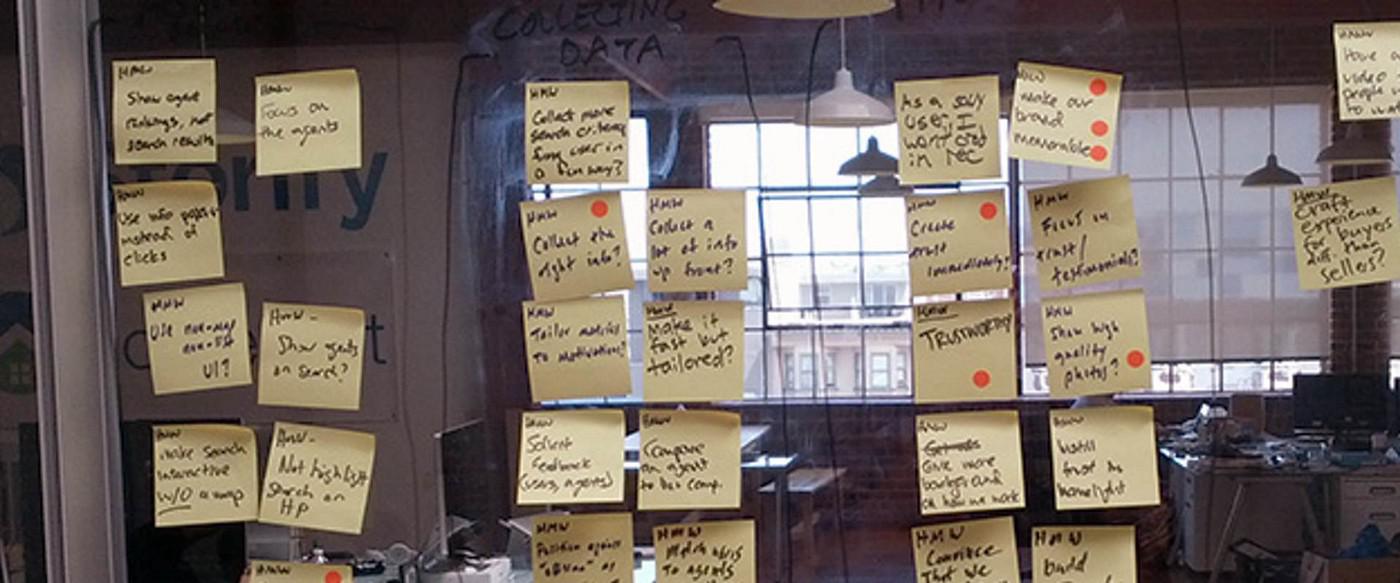 COLLECTING
DATA
HMW
Show agent
rankings, not
search results
HMW
Focus on
the agents
HMW
Use info
instead of
clicks
HMW
Use non-map
non-list
UI?
HMW -
Show agents
on Search?
HMW
make search
interactive
w/o a map
HMW -
Not highlight
Search on
HP
HMW
HMW
Collect more
search criteria
from user in
a fun way?
HMW
Collect the
right info?
HMW
Collect a
lot of info
up front?
HMW
Tailor
to motivations?
HMW
Make it
fast but
tailored?
HMW
Solicit
Feedback
(users, agents)
HMW
Compare
an agent
to comp.
HMW
Position against
HMW
Match
To agents
As a
user, I
want
in
HMW
make our
brand
memorable
HMW
Create
trust
immediately?
HMW
Focus on
trust/
testimonials?
HMW
TRUSTWORTHY
HMW
Show high
quality
photos?
HMW
Give more
background
on how we work
HMW
Instill
trust in
homelight
HMW
Convince
That we
HMW
build
HMW
Have
video
people
to
HMW
Craft
experience
for buyers
diff. than
sellers?